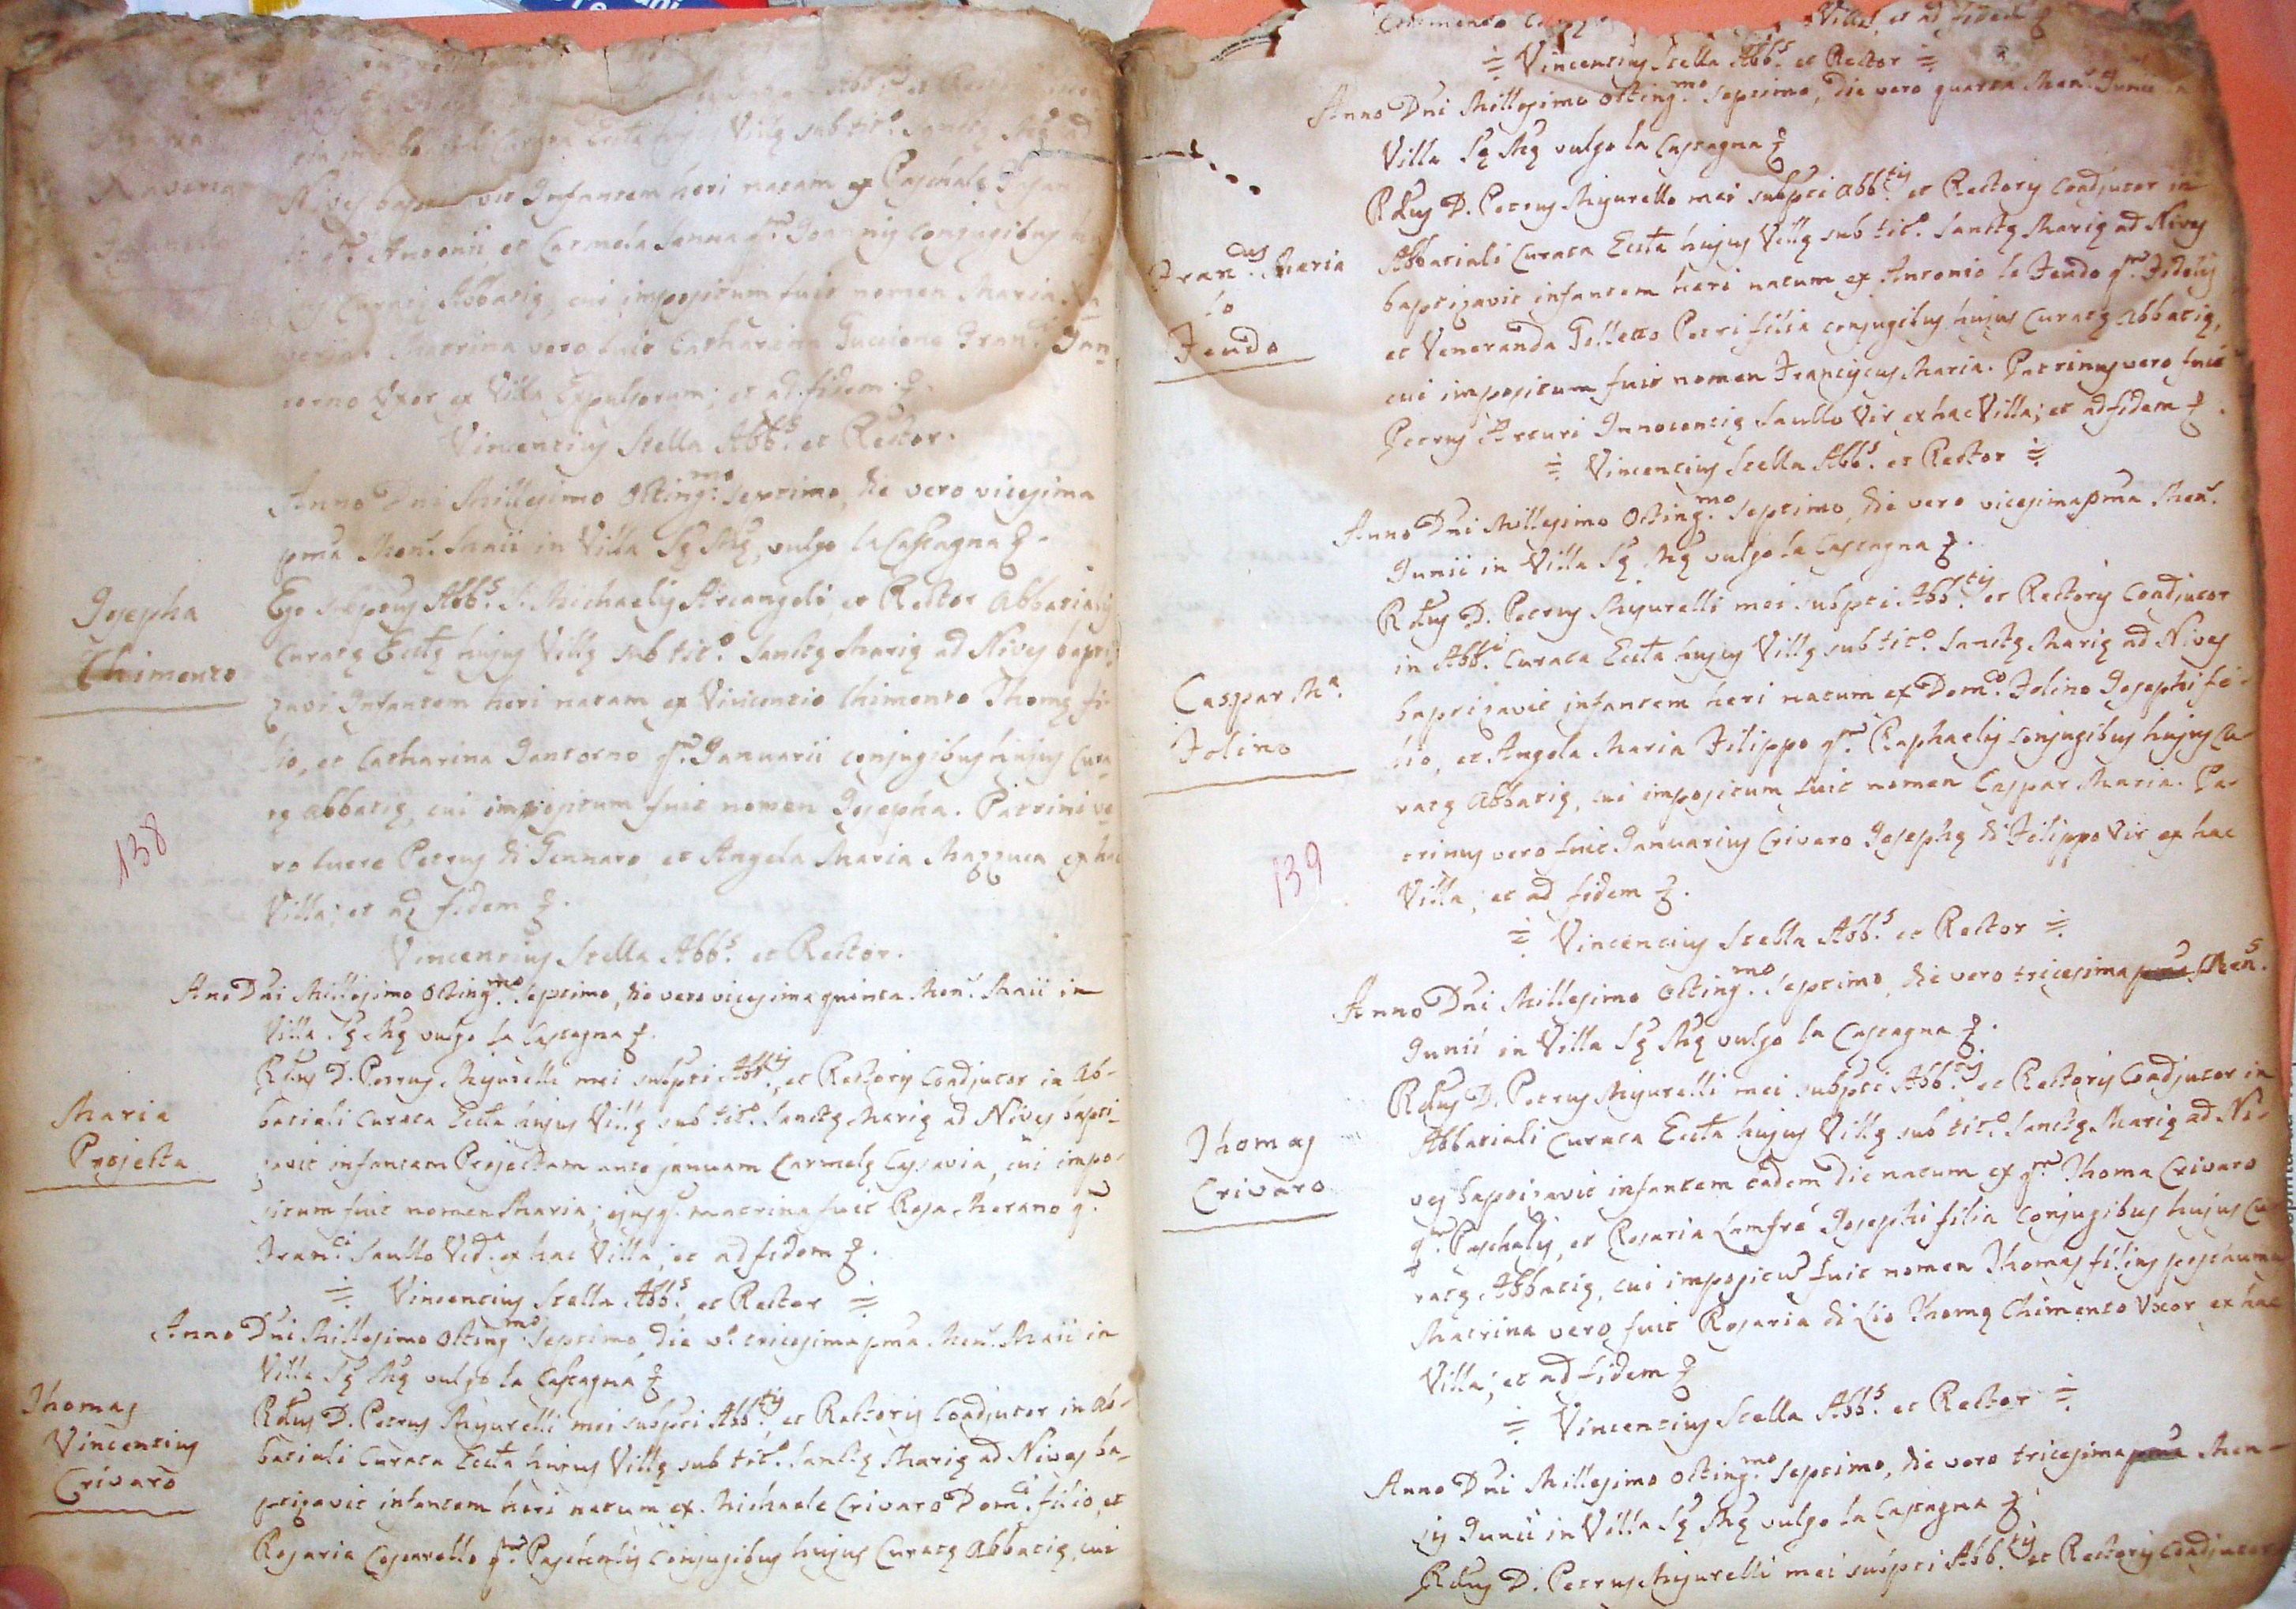 Villę sub tit.º Sanctę Mę ad
Nives bapti vit Infantem heri natam ex Paschale
q.m Antonii, et Carmela Sanna q.m Joannis conjugibus
Curatę Abbatię, cui impositum fuit nomen Maria
Matrina vero fuit Catharina Guccione Fran.ci Jan
torno Uxor ex Villa Expulsorum; et ad fidem &.
Vincentius Stella Abb.s et Rector.
Anno Dni Millesimo Octing.mo septimo, die vero vicesima
pma Men. Maii in Villa Sę Mę, vulgo la Castagna &.
Josepha
Chimento
Ego subptus Abb.s S. Michaelis Arcangeli, et Rector Abbatialis
Curatę Ecctę hujus Villę sub tit.º Sanctę Marię ad Nives bapti
zavi Infantem heri natam ex Vincentio Chimento Thomę fi-
lio, et Catharina Jantorno q.m Januarii conjugibus hujus Cura
tę Abbatię, cui impositum fuit nomen Josepha. Patrini ve
ro fuere Petrus di Gennaro, et Angela Maria Mazzuca ex hac
Villa; et ad fidem &.
Vincentius Stella Abb.s et Rector.
138
Ano Dni Millesimo Octing.mo septimo, die vero vicesima quinta Men. Maii in
Villa Sę Mę vulgo la Castagna &.
Maria
Projecta
Rdus D. Petrus Misurelli mei subpti Abb.tis, et Rectoris Coadjutor in Ab-
batiali Curata Eccta hujus Villę sub tit.º Sanctę Marię ad Nives bapti-
zavit infantem Projectam ante januam Carmelę, cui impo-
situm fuit nomen Maria; ejusq. matrina fuit Rosa Morano q.m
Fran.ci Saullo Vid.a ex hac Villa; et ad fidem &.
Vincentius Stella Abb.s et Rector
Anno Dni Millesimo Octing.mo septimo, die v.º tricesima pma Men. Maii in
Villa Sę Mę vulgo la Castagna &
Thomas
Vincentius
Crivaro
Rdus D. Petrus Misurelli mei subpti Abb.tis, et Rectoris Coadjutor in Ab-
batiali Curata Eccta hujus Villę sub tit.º Sanctę Marię ad Nives ba-
ptizavit infantem heri natum ex Michaele Crivaro Dom.ci filio, et
Rosaria Coscarello q.m Paschalis conjugibus hujus Curatę Abbatię, cui
Chimento Villa, et ad fidem &
Vincentius Stella Abb.s et Rector
Anno Dni Millesimo Octing.mo septimo, die vero quarta Men. Junii in
Villa Sę Mę vulgo la Castagna &
Fran.cus Maria
lo
Feudo
Rdus D. Petrus Misurello mei subpti Abb.tis et Rectoris Coadjutor in
Abbatiali Curata Eccta hujus Villę sub tit.º Sanctę Marię ad Nives
baptizavit infantem heri natum ex Antonio lo Feudo q.m Fidelis
et Veneranda Folletto Petri filia conjugibus hujus Curatę Abbatię,
cui impositum fuit nomen Franciscus Maria. Patrinus vero fuit
Petrus Arcuri Innocentię Saullo Vir ex hac Villa; et ad fidem &.
Vincentius Stella Abb.s et Rector
Anno Dni Millesimo Octing.mo septimo, die vero vicesima pma Men.
Junii in Villa Sę Mę vulgo la Castagna &.
Caspar M.a
Folino
Rdus D. Petrus Misurelli mei subpti Abb.tis et Rectoris Coadjutor
in Abb.i Curata Eccta hujus Villę sub tit.º Sanctę Marię ad Nives
baptizavit infantem heri natum ex Dom.co Folino Josephi fi-
lio, et Angela Maria Filippo q.m Raphaelis conjugibus hujus Cu-
ratę Abbatię, cui impositum fuit nomen Caspar Maria. Pa-
trinus vero fuit Januarius Crivaro Josephę di Filippo Vir ex hac
Villa; et ad fidem &.
Vincentius Stella Abb.s et Rector
139
Anno Dni Millesimo Octing.mo septimo, die vero tricesima Men.s
Junii in Villa Sę Mę vulgo la Castagna &.
Thomas
Crivaro
Rdus D. Petrus Misurelli mei subpti Abb.tis et Rectoris Coadjutor in
Abbatiali Curata Eccta hujus Villę sub tit.º Sanctę Marię ad Ni-
ves baptizavit infantem eadem die natum ex q.m Thoma Crivaro
q.m Paschalis, et Rosaria Lanfré Josephi filia conjugibus hujus Cu
ratę Abbatię, cui impositu fuit nomen Thomas filius posthumus
Matrina vero fuit Rosaria di Lio Thomę Chimento Uxor ex hac
Villa; et ad fidem &
Vincentius Stella Abb.s et Rector
Anno Dni Millesimo Octing.mo septimo, die vero tricesima Men-
sis Junii in Villa Sę Mę vulgo la Castagna &.
Rdus D. Petrus Misurelli mei subpti Abb.tis et Rectoris Coadjutor